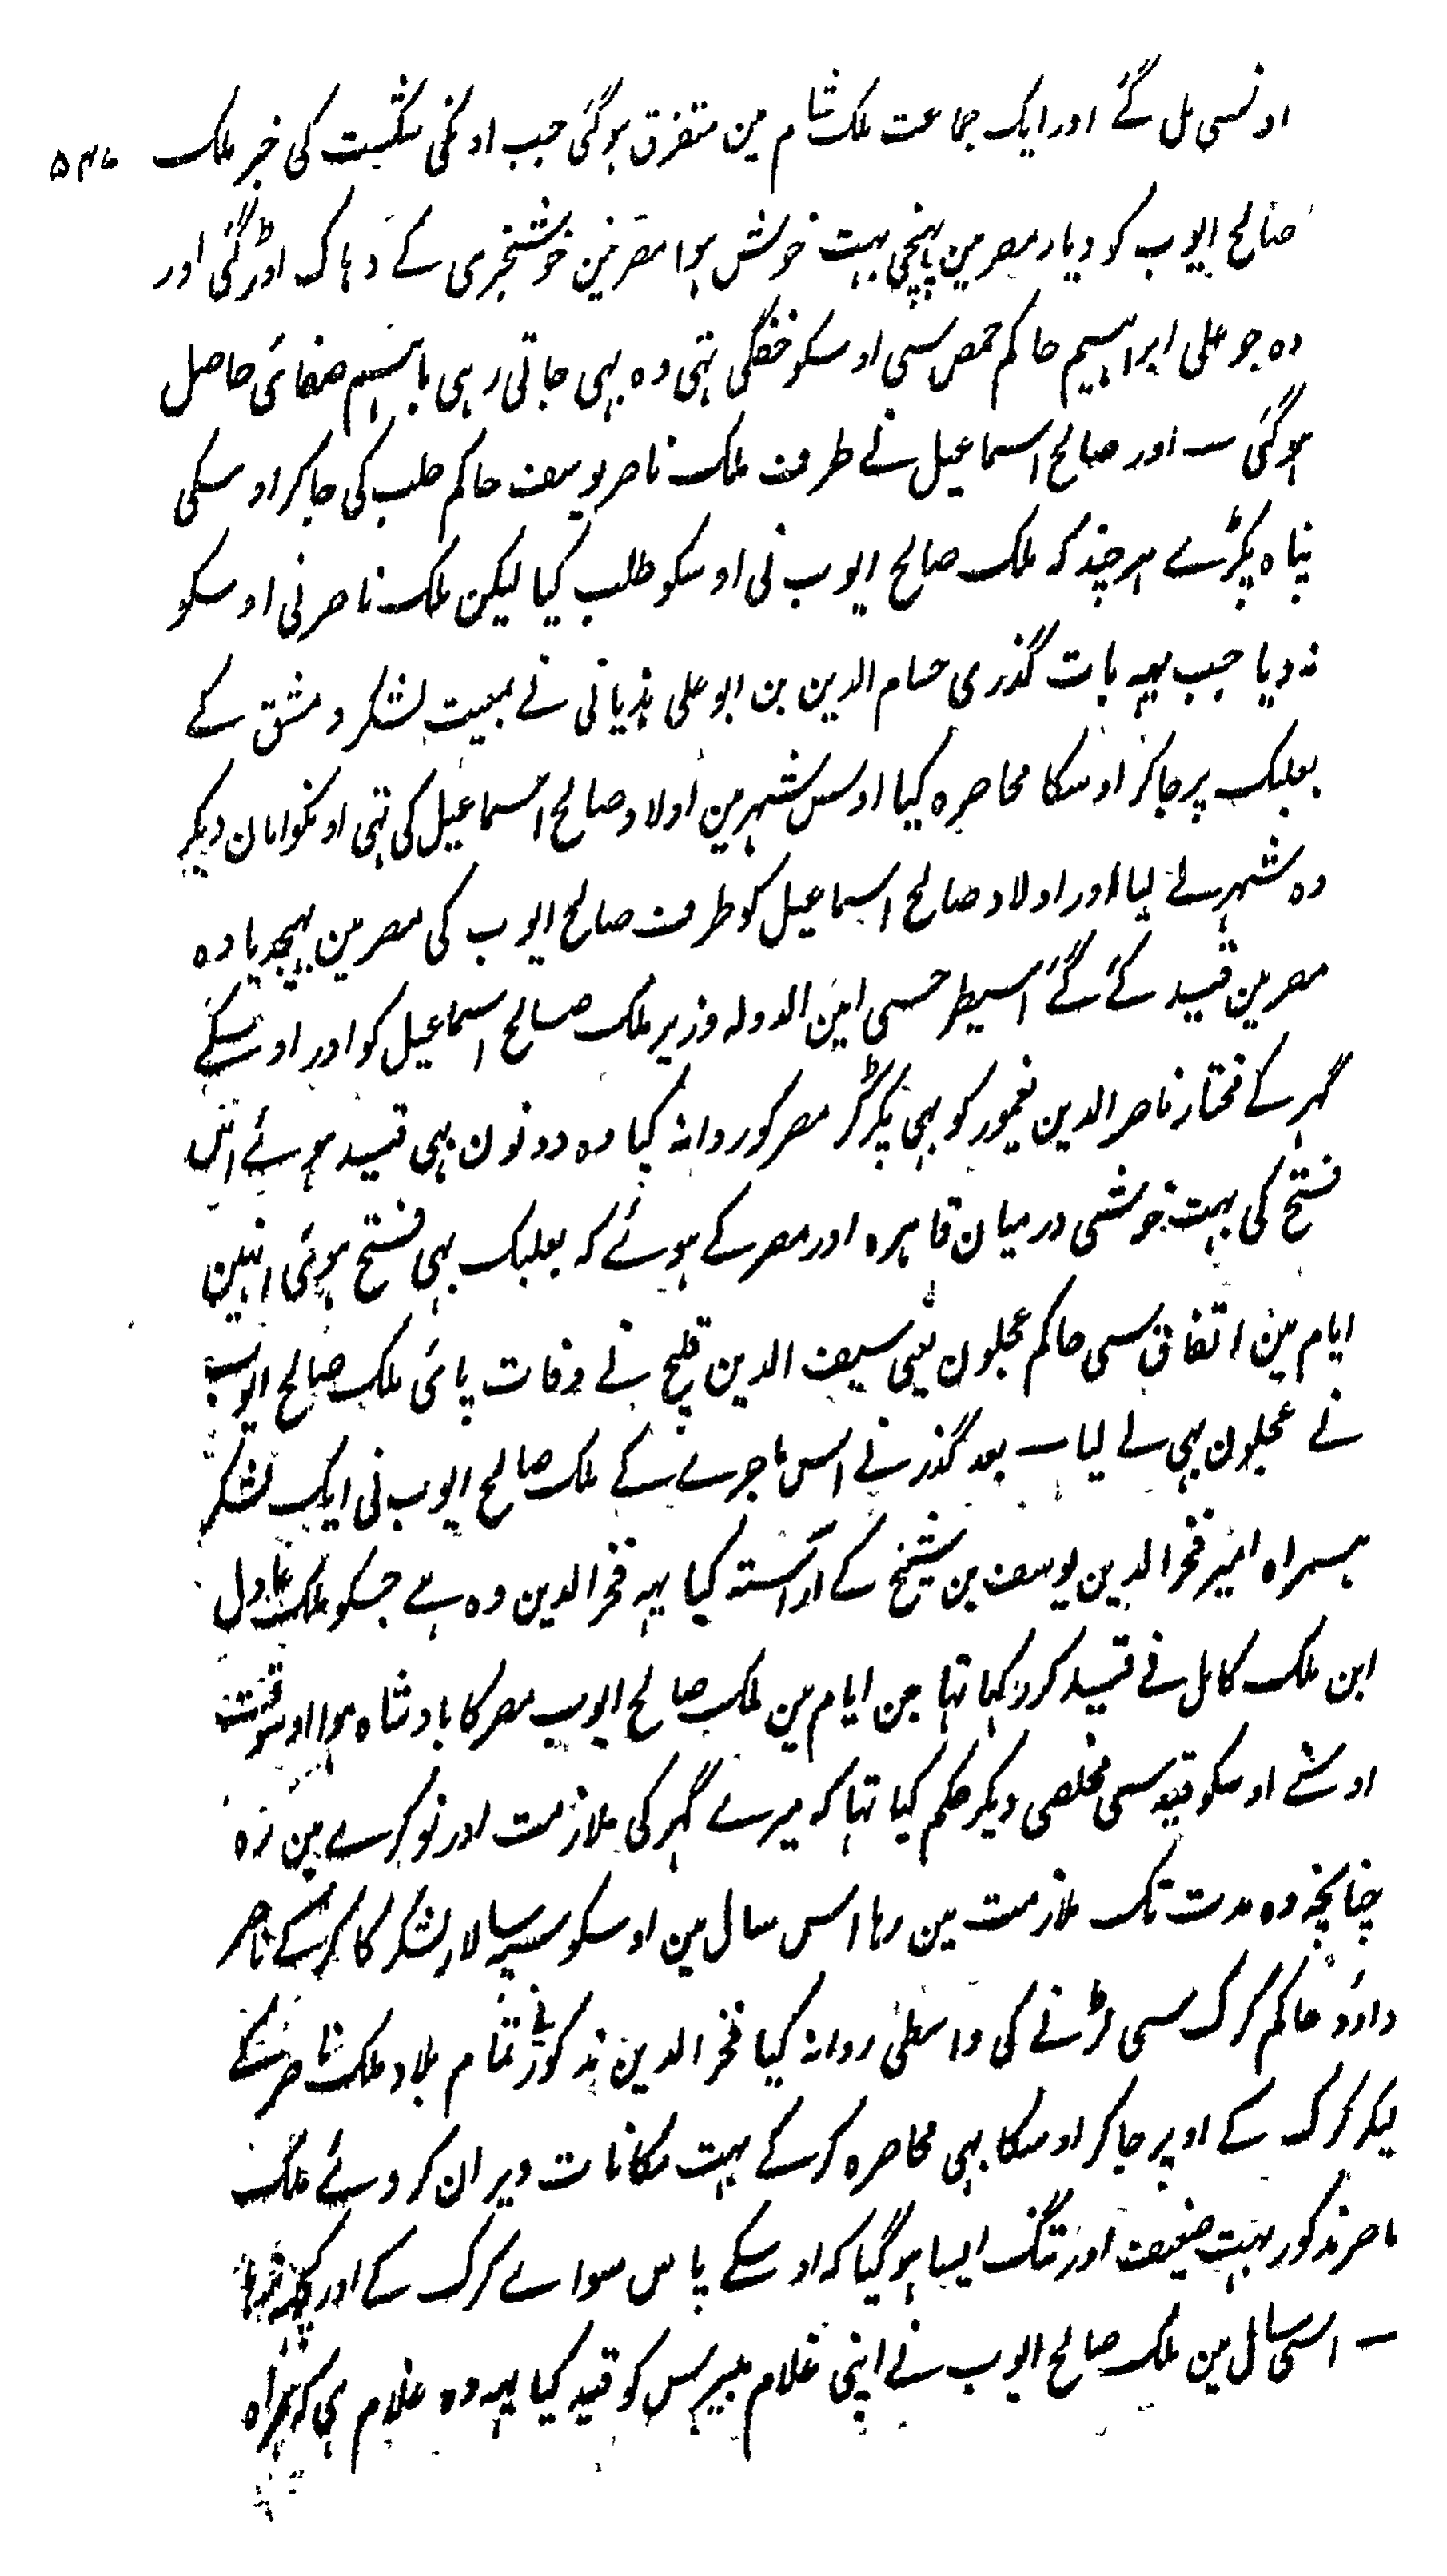 اونسی مل گئے اور ایک جماعت ملک شام مین متفرق ہوگئی جب اونکی شکست کی خبر ملک
صالح ایوب کو دیار مصر مین پہنچی بہت خوش ہوا مصر مین خوشخبری کے دہاک اوڑ گئی اور
وہ جو علی ابراہیم حاکم حمص سی اوسکو خفگی تہی وہ بہی جاتی رہی باہم صفائی حاصل
ہوگئی ۔ اور صالح اسماعیل نے طرف ملک ناصر یوسف حاکم حلب کی جاکر اوسکی
پناہ پکڑے ہرچند کہ ملک صالح ایوب نی اوسکو طلب کیا لیکن ملک ناصر نی اوسکو
نہ دیا جب یہہ بات گذری حسام الدین بن ابو علی ہذیانی نے بمعیت لشکر دمشق کے
بعلبک پر جاکر اوسکا محاصرہ کیا اوس شہر مین اولاد صالح اسماعیل کی تہی اونکو امان دیکر
وہ شہر لے لیا اور اولاد صالح اسماعیل کو طرف صالح ایوب کی مصر مین بہیجدیا وہ
مصر مین قید کئے گئے اسیطرحسی امین الدولہ وزیر ملک صالح اسماعیل کو اور اوسکے
گہر کے مختار ناصر الدین یغمور کو بہی پکڑکر مصر کو روانہ کیا وہ دونون بہی قید ہوئے اس
فتح کی بہت خوشی درمیان قاہرہ اور مصر کے ہوئے کہ بعلبک بہی فتح ہوئی انہین
ایام مین اتفاق سی حاکم عجلون یعنی سیف الدین قلج نے وفات پائی ملک صالح ایوب
نے عجلون بہی لے لیا ۔ بعد گذرنے اس ماجرے کے ملک صالح ایوب نی ایک لشکر
ہمراہ امیر فخر الدین یوسف بن شیخ کے آراستہ کیا یہہ فخر الدین وہ ہے جسکو ملک عادل
ابن ملک کامل نے قید کر رکہا تہا جن ایام مین ملک صالح ایوب مصر کا بادشاہ ہوا اوسوقت
اوسنے اوسکو قید سی مخلصی دیکر حکم کیا تہا کہ میرے گہر کی ملازمت اور نوکرے مین رہ
چنانچہ وہ مدت تک ملازمت مین رہا اس سال مین اوسکو سپہ سالار لشکر کا کرکے ناصر
داؤد حاکم کرک سی لڑنے کی واسطی روانہ کیا فخر الدین مذکور نے تمام بلاد ملک ناصر کے
لیکر کرک کے اوپر جاکر اوسکا بہی محاصرہ کرکے بہت مکانات ویران کر دئے ملک
ناصر مذکور بہت ضعیف اور تنگ ایسا ہوگیا کہ اوسکے پاس سواے کرک کے اور کچہہ نتہا
۔ اسی سال مین ملک صالح ایوب نے اپنی غلام بیبرس کو قید کیا یہہ وہ غلام ہی کہ ہمراہ